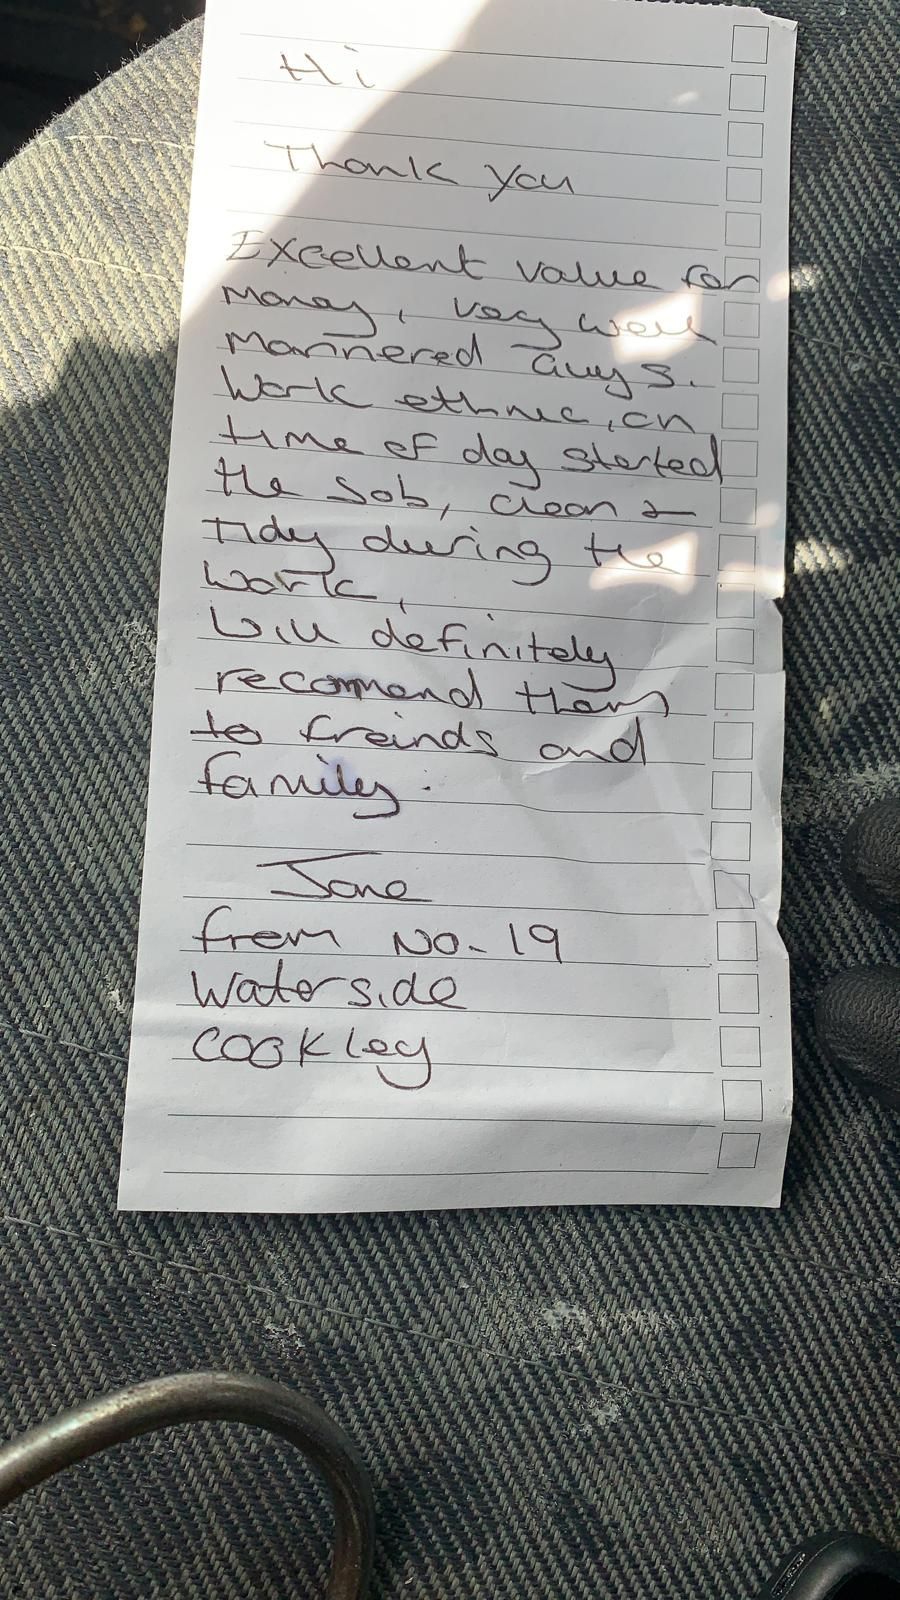 Hi
Thank you
Excellent value for
money, very well
mannered guys.
Work ethnic, on
time of day started
the job, clean &
tidy during the
work,
Will definitely
recommend them
to freinds and
family.
Jane
from No. 19
Waterside
Cookley